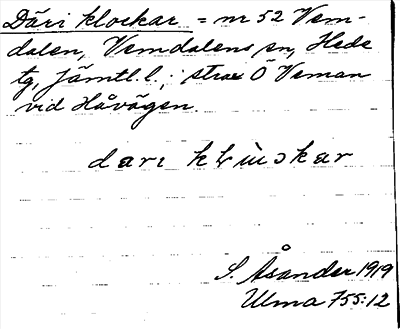 Däri klockar = nr 52 Vem-
dalen, Vemdalens sn, Hede
tg, Jämtl. l.; strax Ö Veman
vid Håvägen.
dari
S. Åsander 1919
Ulma 755:12